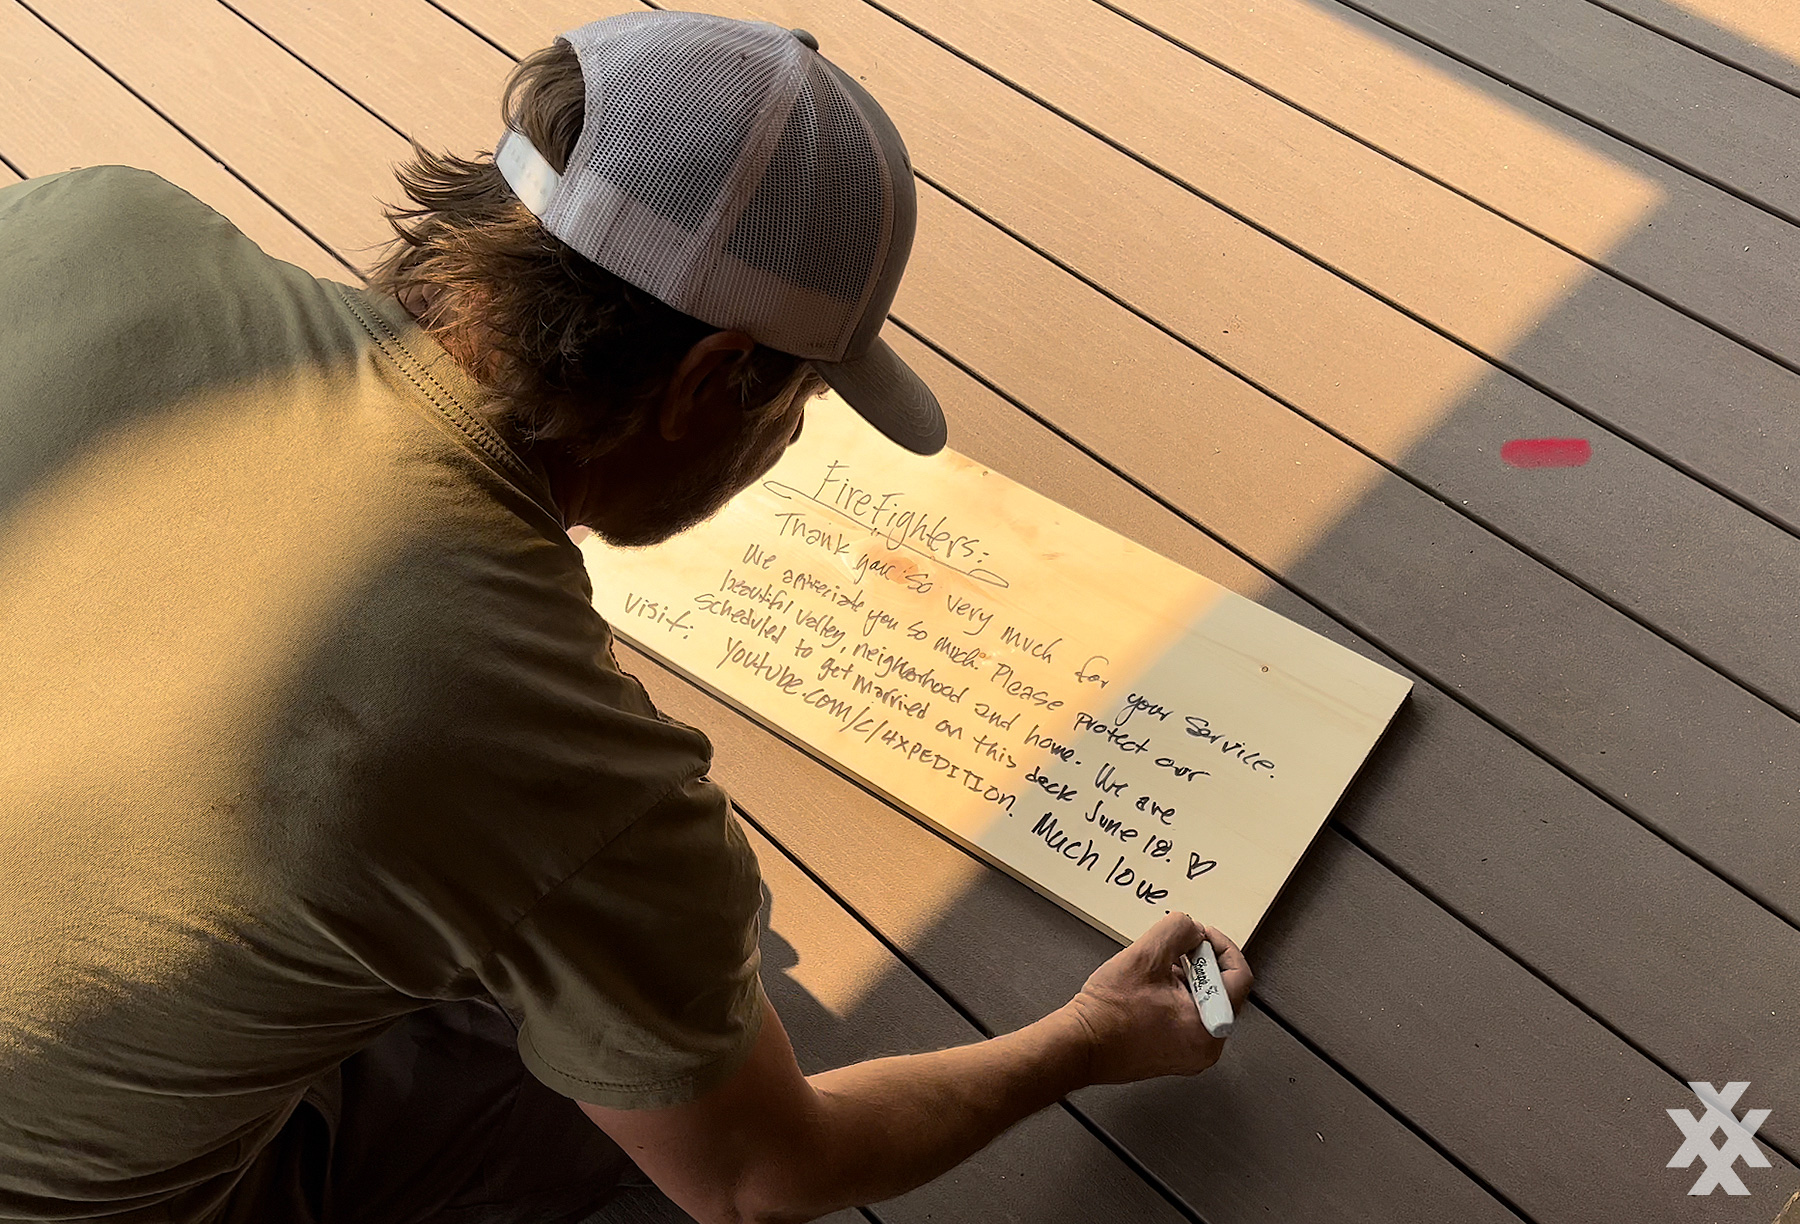 FireFighters:
Thank you so very much for your service.
We appreciate you so much. Please protect our
beautiful valley, neighborhood and home. We are
scheduled to get married on this deck June 18. ♡
Visit: Youtube.com/c/4XPEDITION. Much love.
Sharpie